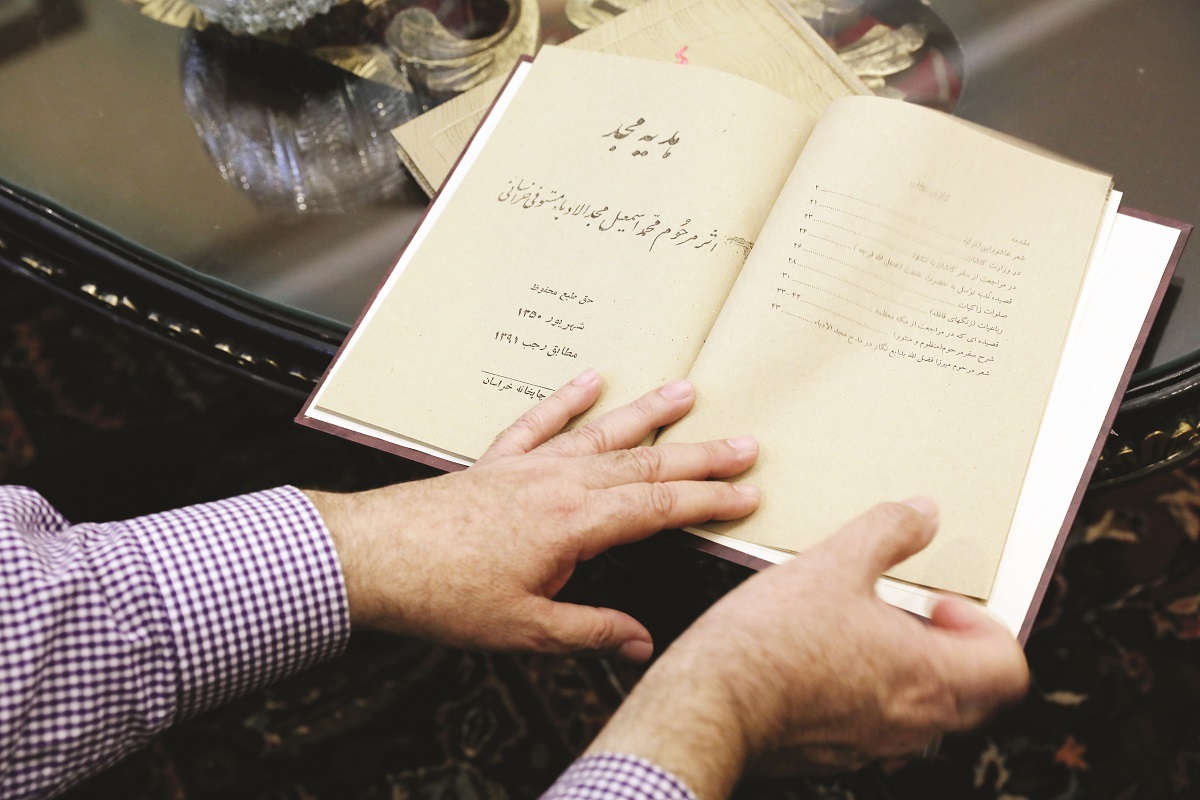 مقدمه ۲
شعر عاشورائی (مرثیه) ۲۱
در وزارت کاشان ۲۳
در مراجعت از سفر کاشان به مشهد ۲۴
قصیده توسل به حضرت حجت (عجل الله فرجه)
صلوات زاکیات ۲۶
رباعیات (زنگهای قافله) ۲۸
قصیده ای که در مراجعت از مکه معظمه ۳۰
شرح سفر مرحوم (منظوم و منثور) ۳۳-۴۲
شعر مرحوم میرزا فضل الله بدایع نگار در مدح مجد الادباء ۴۳
هدیه مجد
اثر مرحوم محمد اسمعیل مجد الادباء مستوفی خراسانی
حق طبع محفوظ
شهریور ۱۳۵۰
مطابق رجب ۱۳۹۱
چاپخانه خراسان